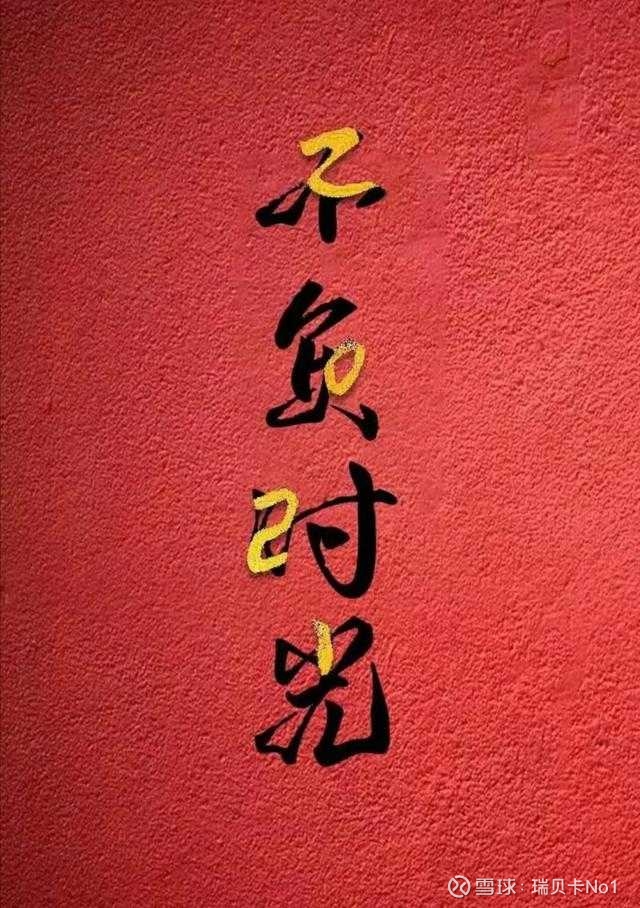 不负时光
2021
雪球：瑞贝卡No1